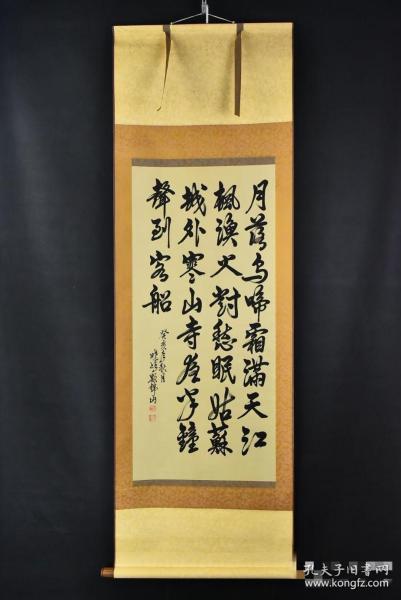 月落烏啼霜滿天江
楓漁火對愁眠姑蘇
城外寒山寺夜半鐘
聲到客船
癸亥年秋月
孔夫子旧书网
www.kongfz.com